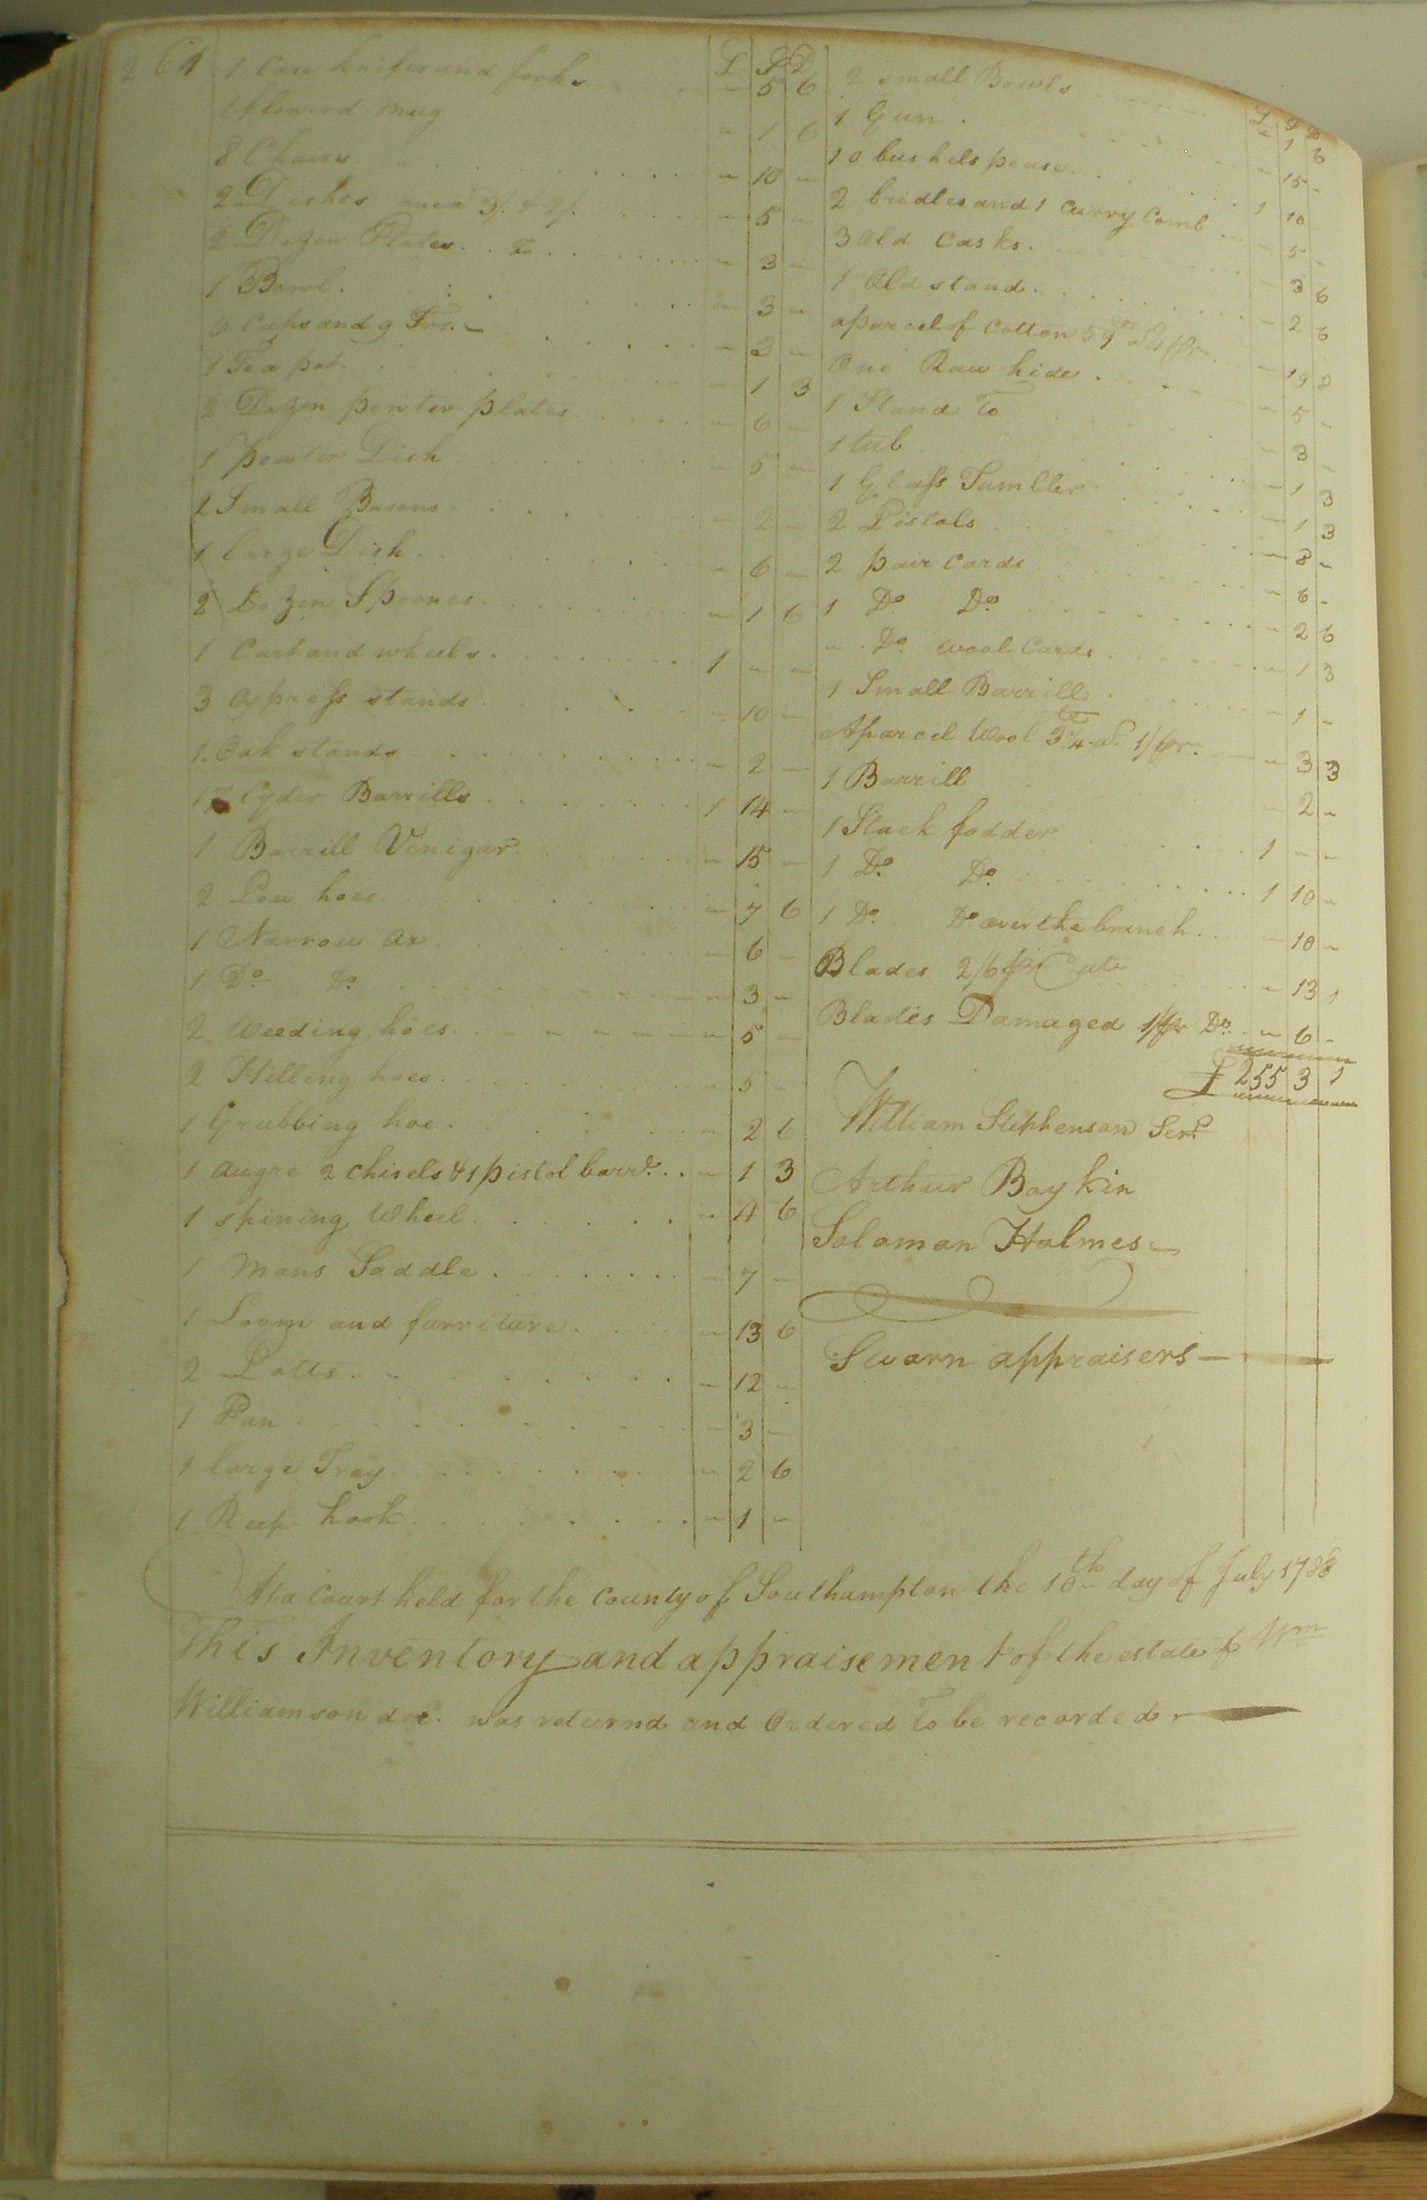 264
L S D
1 Case knifes and forks - 5 6
1 flowered mug - 1 6
8 Chairs - 10 -
2 Dishes one a 3/. & 2/. - 5 -
2 Dozen Plates Do - 3 -
1 Bowl - 3 -
6 Cups and 9 - 3 -
1 Tea pot - 1 3
2 Dozen pewter plates - 6 -
1 pewter Dish - 5 -
2 Small Basons - 2 -
1 large Dish - 6 -
2 Dozen Spoones - 1 6
1 Cart and wheels 1 - -
3 Cypress stands - 10 -
1 Oak stands - 2 -
17 Cyder Barrills 1 14 -
1 Barrill Vinigar - 15 -
2 Plow hoes - 7 6
1 Narrow ax - 6 -
1 Do Do - 3 -
2 Weeding hoes - 5 -
2 Hilling hoes - 5 -
1 Grubbing hoe - 2 6
1 augre 2 chisels & 1 pistol barrl. - 1 3
1 spining wheel - 4 6
1 mans Saddle - 7 -
1 Loom and furniture - 13 6
2 Potts - 12 -
1 Pan - 3 -
1 large Tray - 2 6
1 Reep hook - 1 -
L S D
2 small Bowls - 1 6
1 Gun - 15 -
10 bushels pease 1 10
2 bridles and 1 curry comb - 5 -
3 old casks - 3 6
1 Old stand - 2 6
a parcel of cotton 59 a 4 pr - 19 8
One Raw hide - 5 -
1 Stand Do - 3 -
1 tub - 1 3
1 Glass Tumbler - 1 3
2 Pistols - 8 -
2 pair cards - 6 -
1 Do Do - 2 6
- Do wool Cards - 1 3
1 Small Barrill - 1 -
A parcel Wool 3 1/4 a 1/ pr. - 3 3
1 Barrill - 2 -
1 Stack fodder 1 - -
1 Do Do 1 10 -
1 Do Do over the branch - 10 -
Blades 2/6 pr - 13 1
Blades Damaged 1/ pr Do - 6 -
£ 255 3 1
William Stephenson Senr
Arthur Boykin
Solomon Holmes
Sworn appraisers
At a court held for the county of Southampton the 10th day of July 1788
This Inventory and appraisement of the estate of Wm
Williamson decd. was returnd and Ordered To be recorded